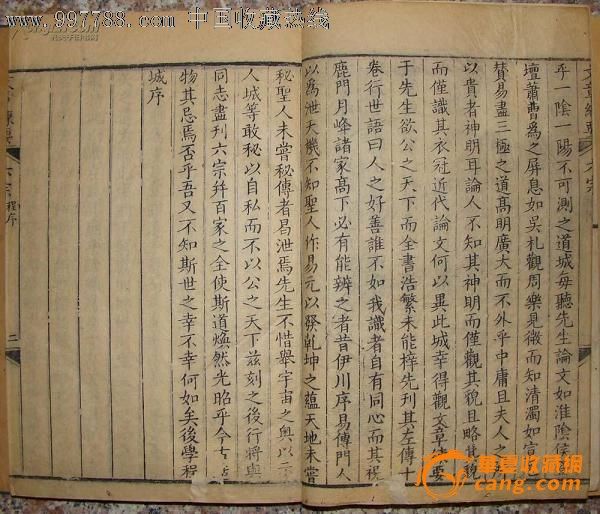 www.997788.com 中国收藏热线
乎一陰一陽不可測之道城每聽先生論文如淮陰侯
壇蕭曹為之屏息如吳札觀周樂見微而知清濁如富
賛易盡三極之道髙明廣大而不外乎中庸且夫人之
以貴者神明耳論人不知其神明而僅觀其貌且略其貌
而僅識其衣冠近代論文何以異此城幸得觀文章練要
于先生欲公之天下而全書浩繁未能梓先刊其左傳十
卷行世語曰人之好善誰不如我識者自有同心而其視
鹿門月峰諸家髙下必有能辨之者昔伊川序易傳門人
以為泄天機不知聖人作易元以發乾坤之蘊天地未嘗
秘聖人未嘗秘傳者曷泄焉先生不惜舉宇宙之奥以
人城等敢秘以自私而不以公之天下兹刻之後行將與
同志盡刊六宗并百家之全使斯道煥然光昭乎今古
物其忌焉否乎吾又不知斯世之幸不幸何如矣後學程
城序
六宗
程序
二
文章練要
六宗
華夏收藏網
cang.com